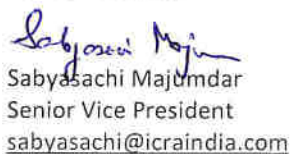 Sabyasachi Majum
Sabyasachi Majumdar
Senior Vice President
sabyasachi@icraindia.com